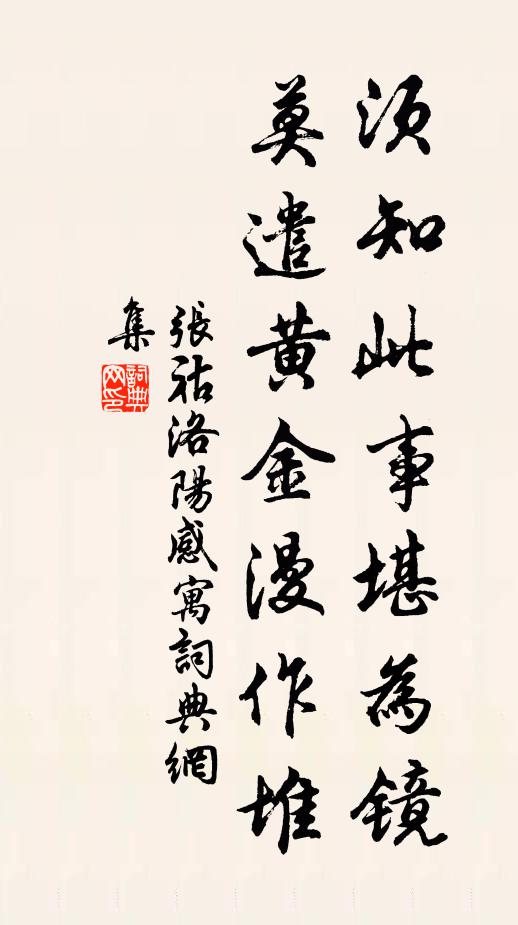 須知此事堪為鏡
莫遣黃金漫作堆
張祜洛陽感寓詞典網
集
詞典
网印